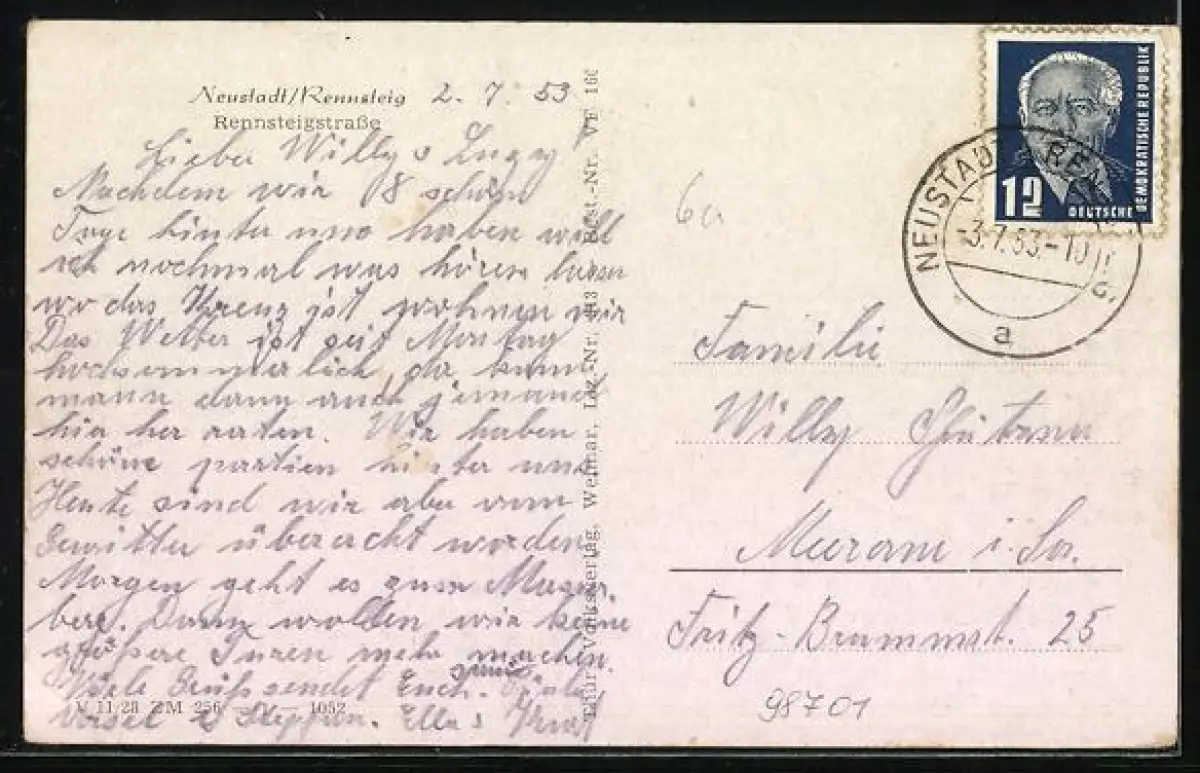 Neustadt/Rennsteig 2. 7. 53
Rennsteigstraße
Lieber Willy &
Nachdem wir 8 schöne
Tage hinter uns haben will
ich nochmal was hören lassen
wo das Kreuz ist wohnen wir
Das Wetter ist seit Montag
hochsommerlich, da kann
mann dann auch jemand
hir her raten. Wir haben
schöne partien hinter uns
Heute sind wir aber vom
Gewitter überracht worden
Morgen geht es zum
berg. Dann wollen wir keine
größere Turen mehr machen.
Viele Grüß sendet Euch
Ella &
V 11/28 ZM 256 1052
Volkskunstverlag, Weimar, Liz.-Nr. Best.-Nr. VF 160
12
DEUTSCHE
DEMOKRATISCHE REPUBLIK
NEUSTADT
-3.7.53.-10
a
6a
Familie
Willy
Meerane i. Sa.
Fritz-Brummst. 25
98701